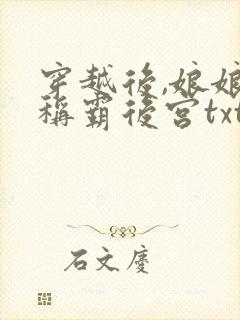 穿越後,娘娘
稱霸後宮txt
石文慶